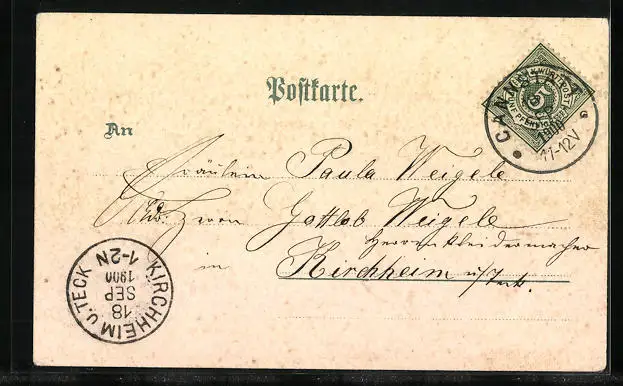 Postkarte.
An
Fräulein Paula Weigele
Adr. von Gottlob Weigele
Herrenkleidermacher
in Kirchheim u/Teck.
CANNSTATT
1900
11-12V
5
KIRCHHEIM u. TECK
18
SEP
1900
1-2N